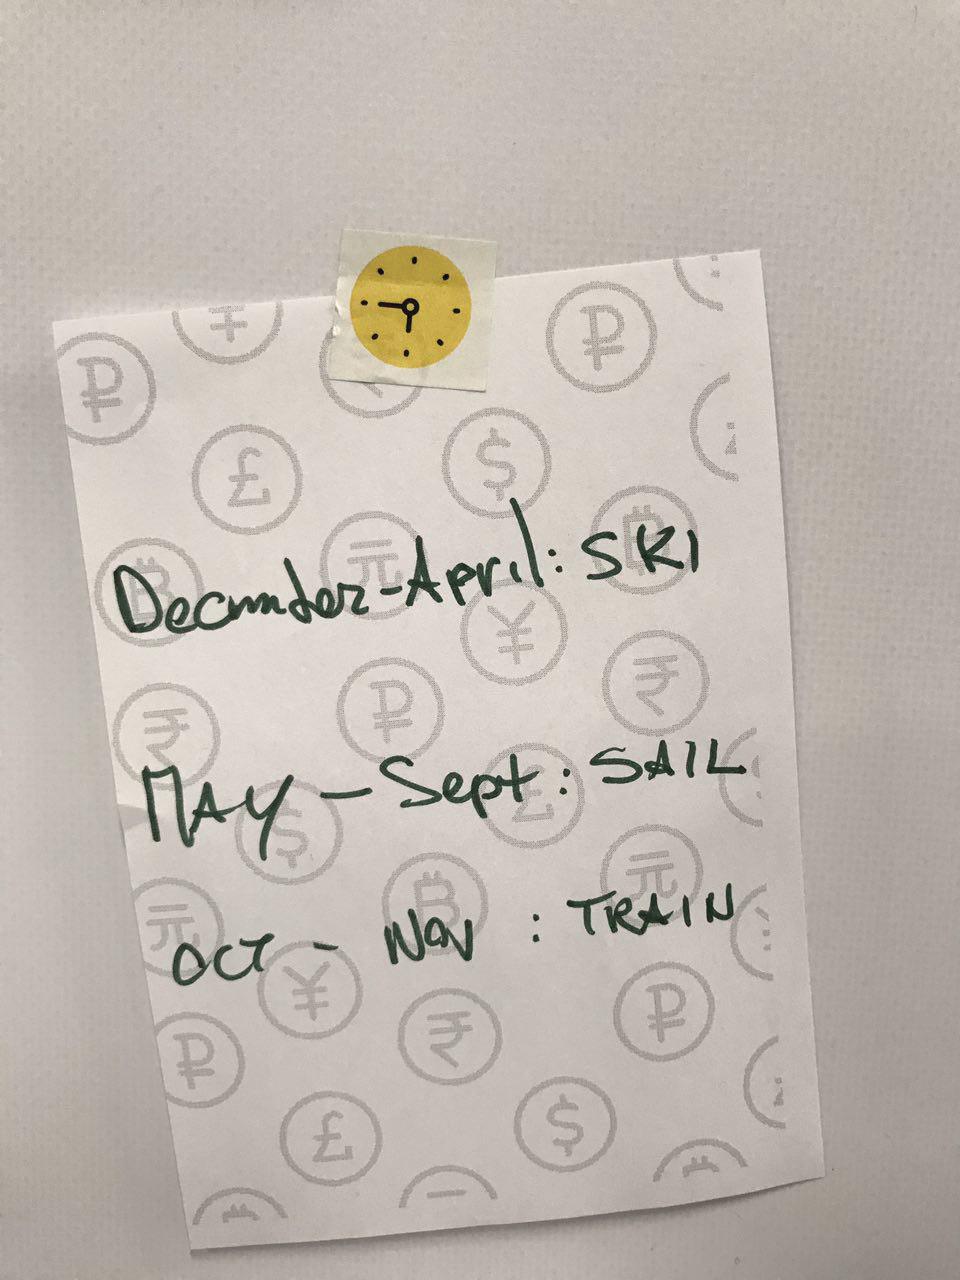 December-April: SKI
MAY - Sept: SAIL
OCT - NOV : TRAIN